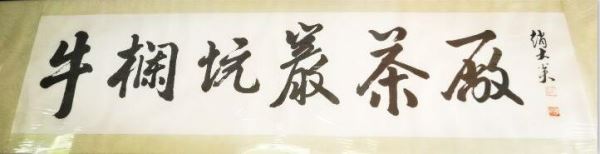 牛欄坑巖茶廠